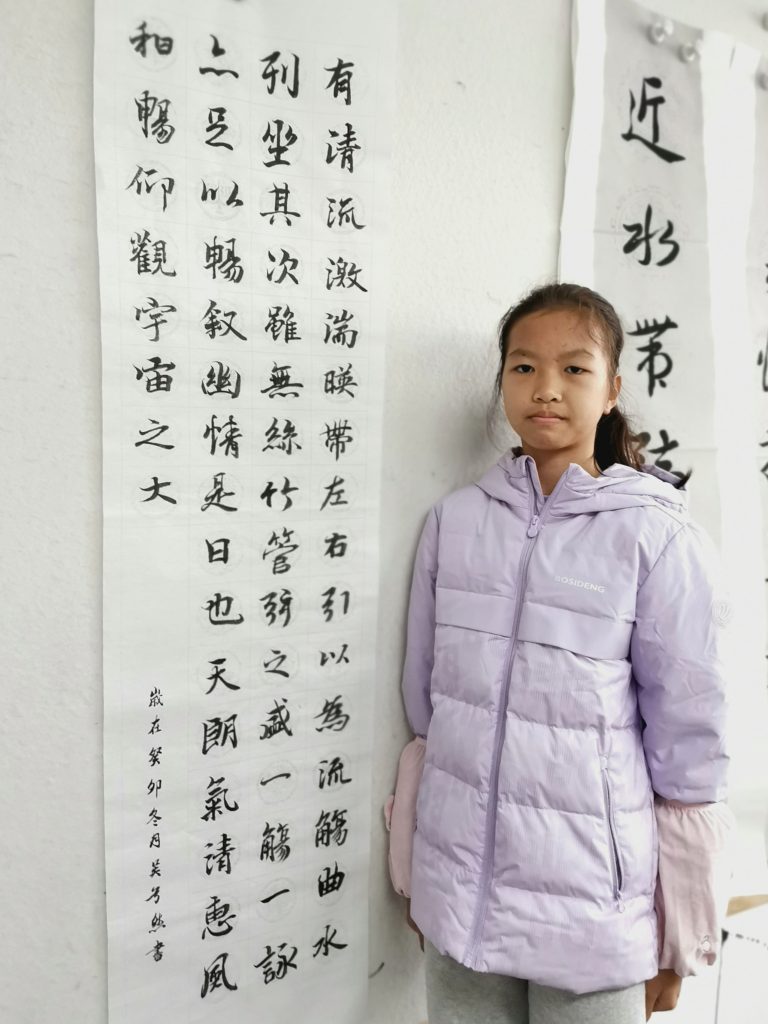 有清流激湍暎帶左右引以為流觴曲水
列坐其次雖無絲竹管弦之盛一觴一詠
亦足以暢叙幽情是日也天朗氣清惠風
和暢仰觀宇宙之大
歲在癸卯冬月吴書
近水帶
BOSIDENG